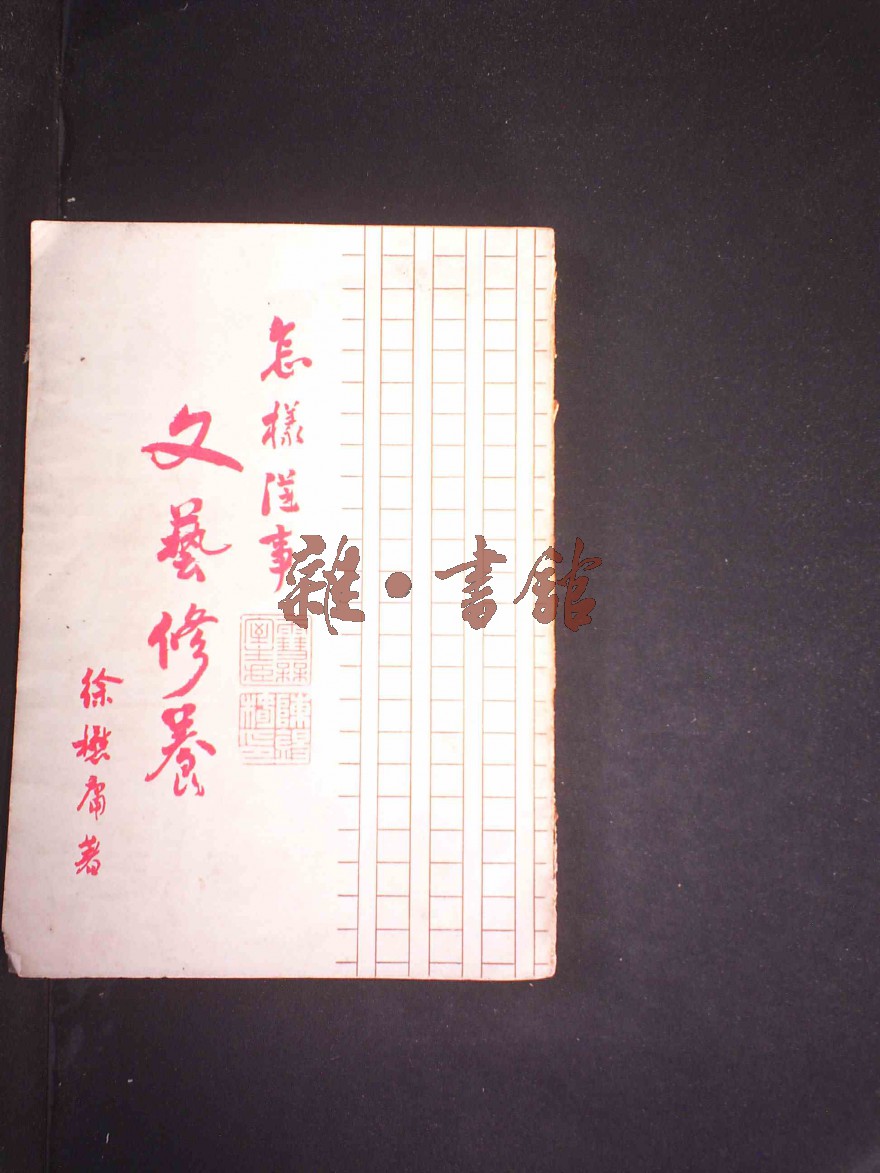 怎樣從事
文藝修養
徐懋庸著
雜·書館